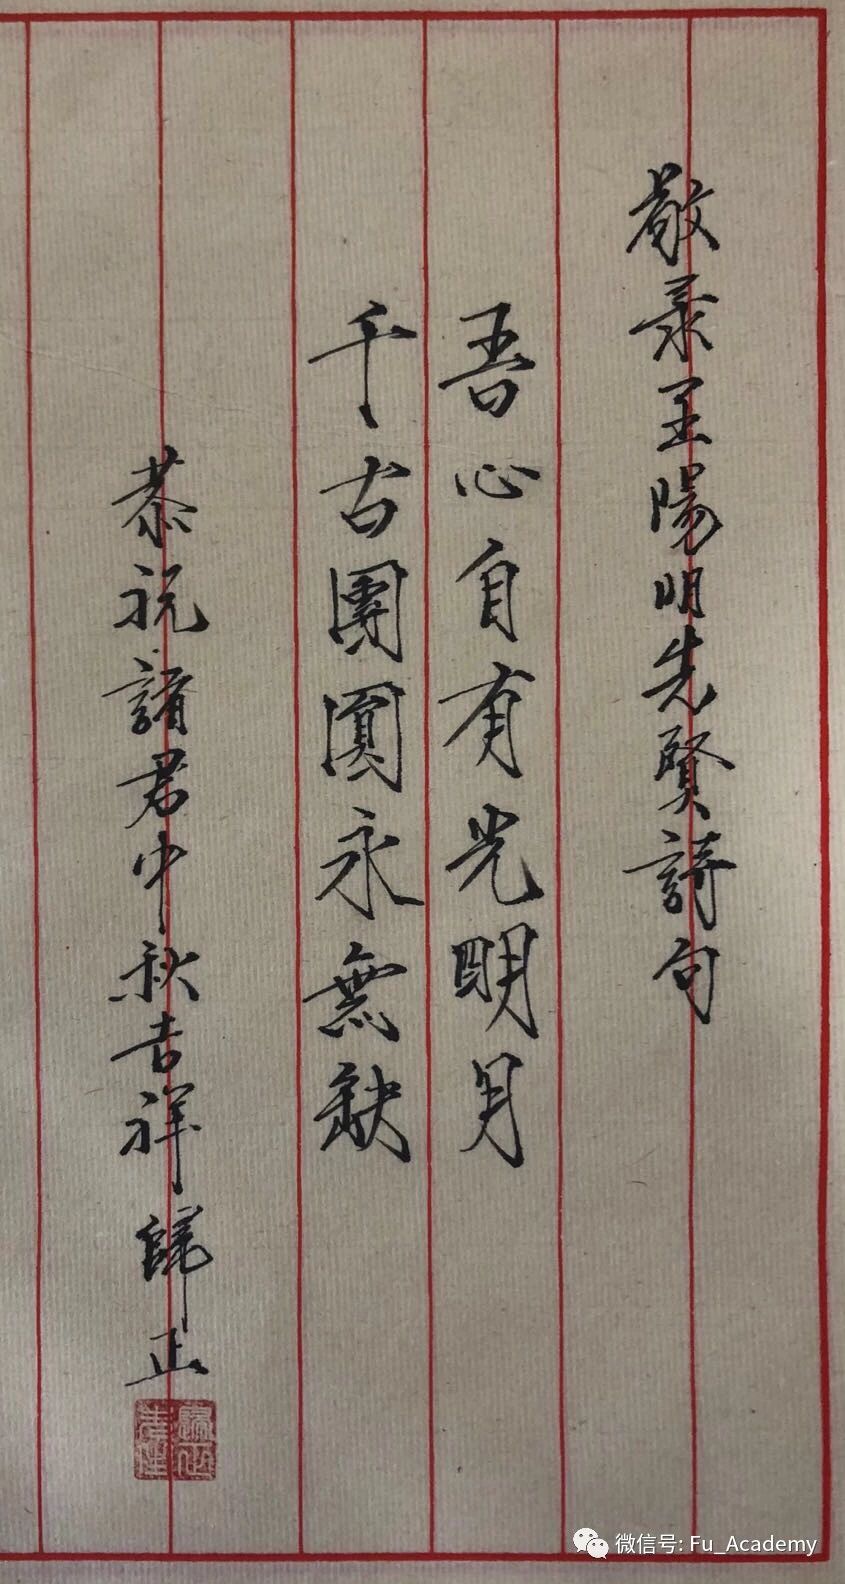 敬录王陽明先賢詩句
吾心自有光明月
千古團圓永無缺
恭祝諸君中秋吉祥 歸正
微信号: Fu_Academy